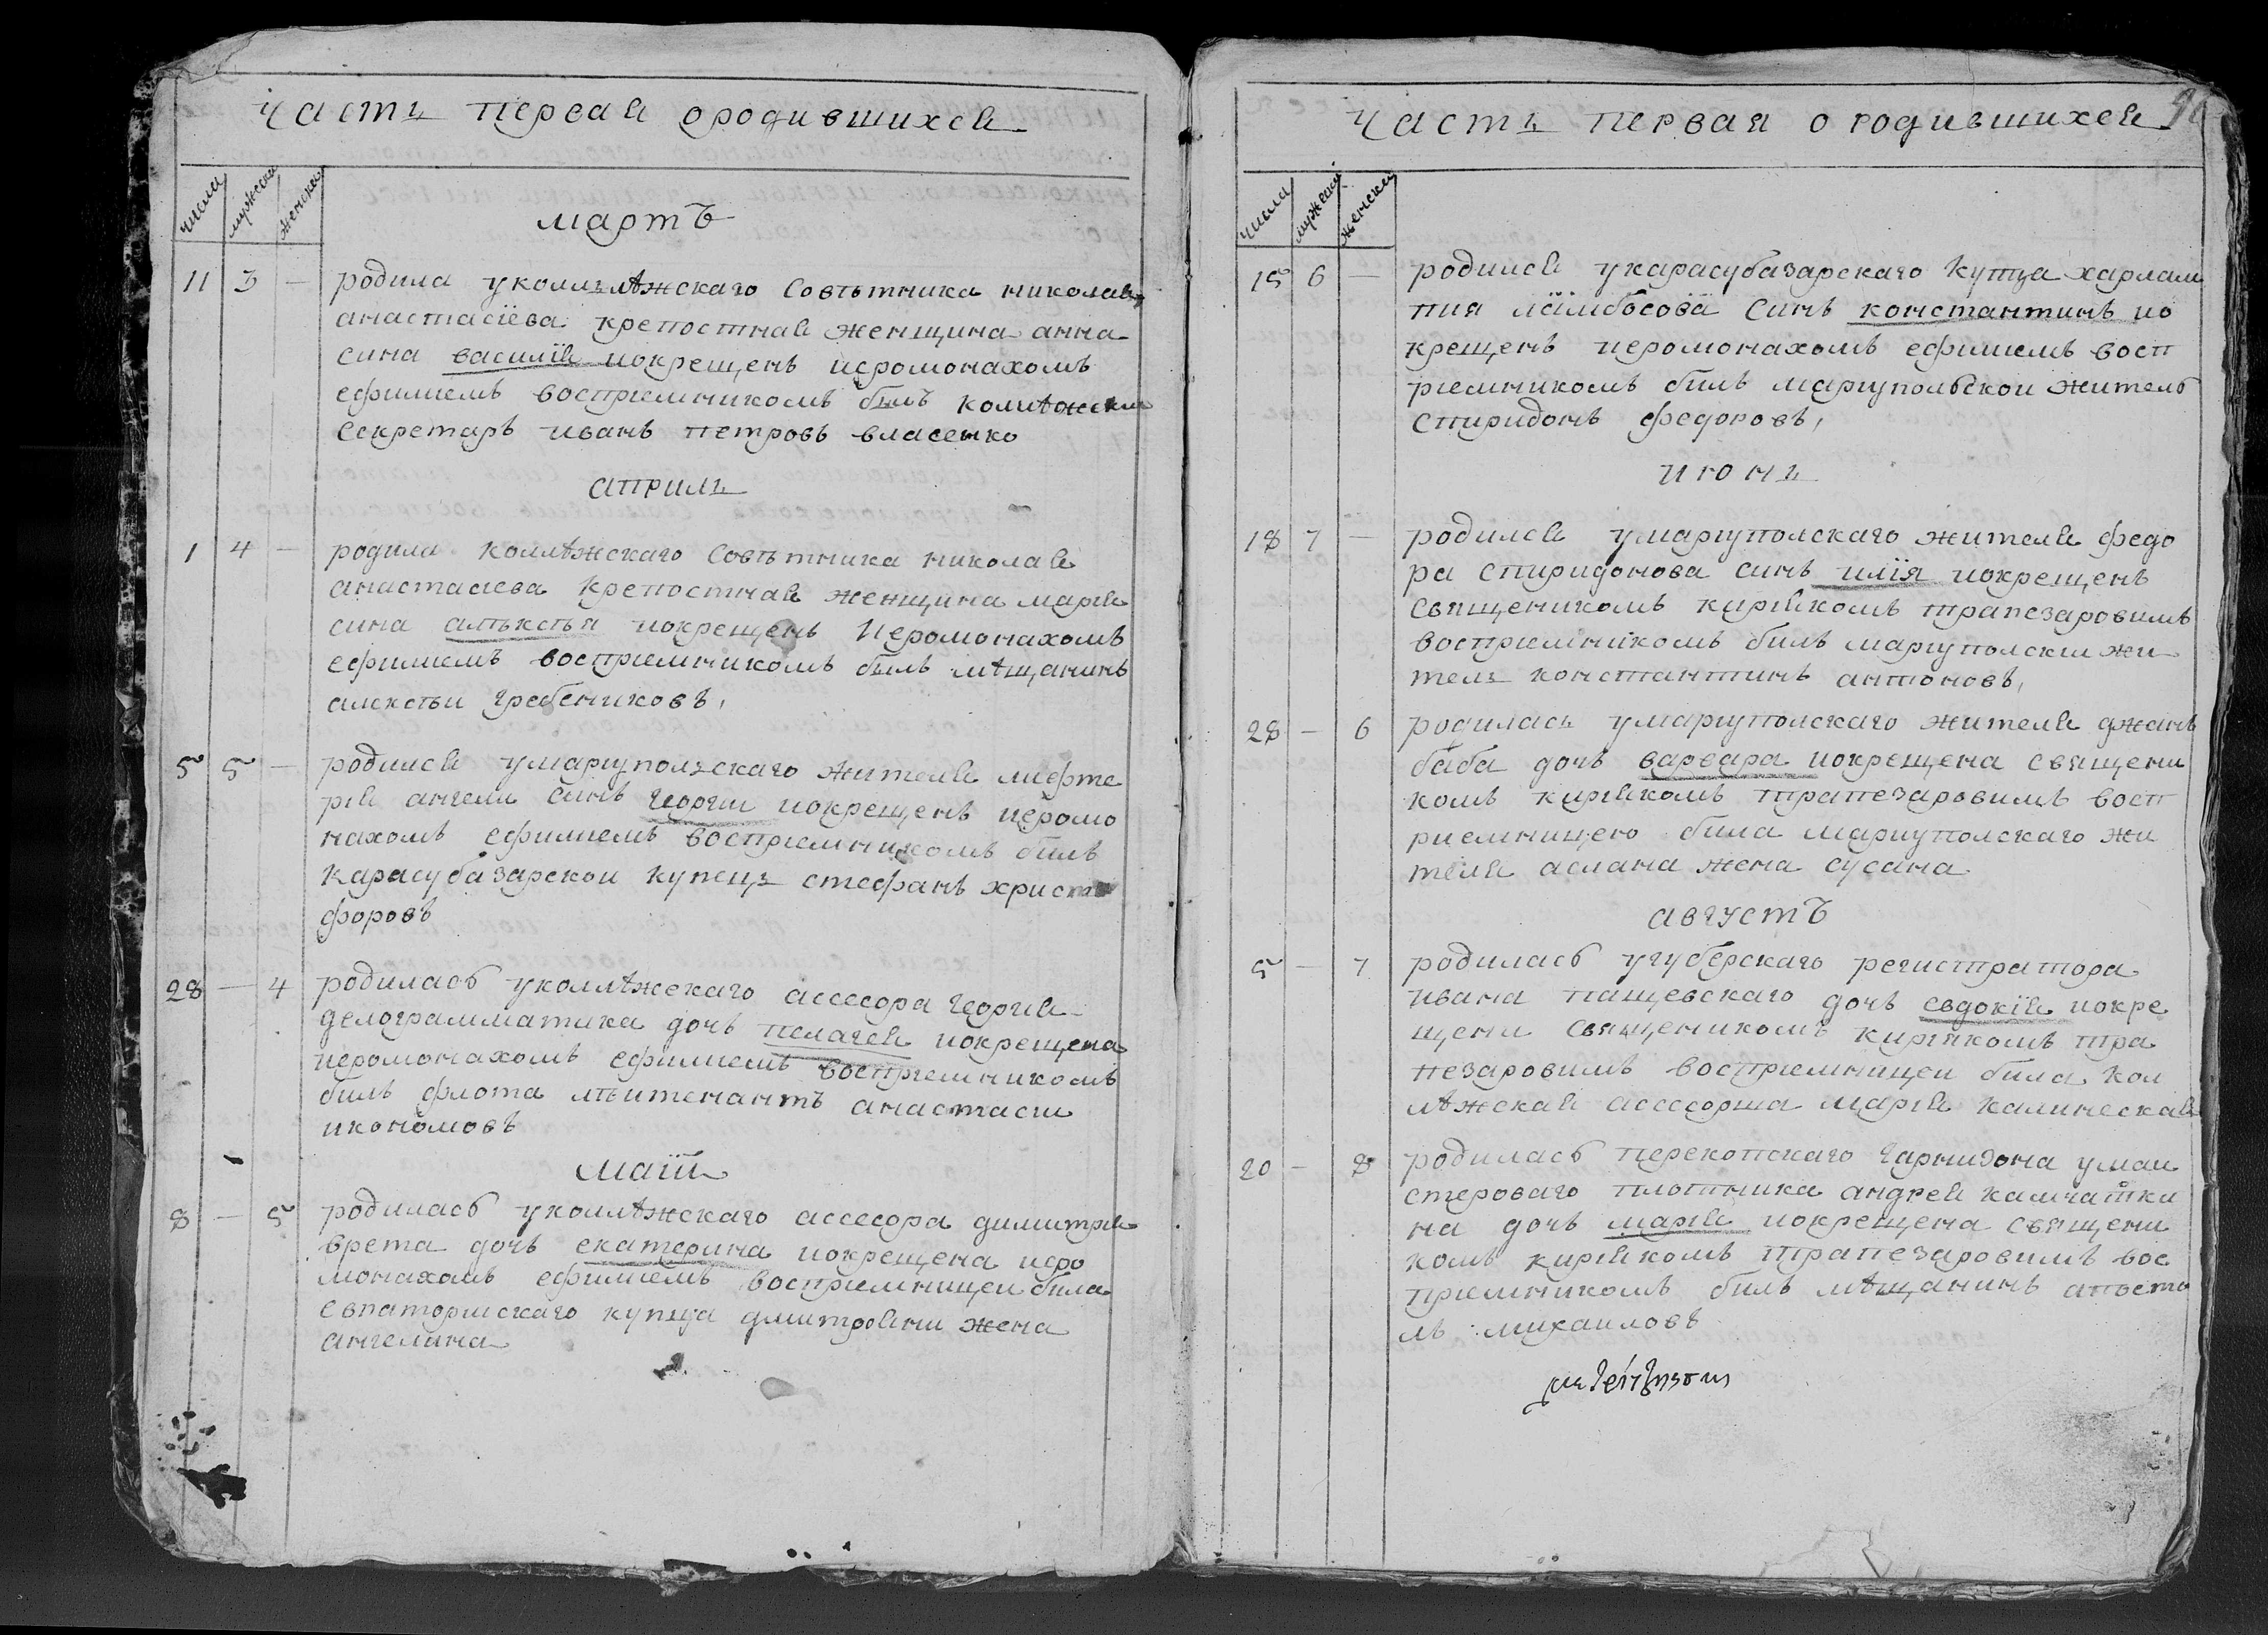 часть первая ородившихся
числа мужеска женска
мартъ
11 3 — родила уколлѣжскаго совѣтника николая
анастасіева крепостная женщина анна
сина василія покрещенъ иеромонахомъ
ефимиемъ восприемникомъ былъ колѣжски
секретарь иванъ петровъ власенко
априль
1 4 — родила коллѣжскаго совѣтника николая
анастасиева крепостная женщина мария
сина алѣксѣя покрещенъ иеромонахомъ
ефимиемъ восприемникомъ былъ мѣщанинъ
алексѣи гребениковъ,
5 5 — родился умариупольскаго жителя
ангели синъ георги покрещенъ иеромо
нахомъ ефимиемъ восприемникомъ билъ
карасубазарскои купець стефанъ христо
форовъ
28 — 4 родилась уколлѣжскаго ассесора георгия
делограмматика дочь пелагея покрещена
иеромонахомъ ефимиемъ восприемникомъ
билъ флота лѣитенантъ анастаси
икономовъ
маїи
8 — 5 родилась уколлѣжскаго ассесора димитрия
врета дочь екатерина покрещена иеро
монахомъ ефимиемъ восприемницеи била
евпаторискаго купца жена
ангелина
часть первая о родившихся
числа мужеска женска
15 6 — родился укарасубазарскаго купца харлам
пия синъ константинъ по
крещенъ иеромонахомъ ефимиемъ восп
риемникомъ билъ мариупольскои житель
спиридонъ федоровъ,
июнь
18 7 — родился умариуполскаго жителя федо
ра спиридонова синъ илїя покрещенъ
священикомъ кирїякомъ трапезаровимъ
восприемникомъ билъ мариуполски жи
тель константинъ антоновъ,
28 — 6 родилась умариуполскаго жителя джанъ
баба дочь варвара покрещена священи
комъ кирїякомъ трапезаровимъ восп
риемницею била мариуполскаго жи
теля аслана жена сусана
августъ
5 — 7 родилась угуберскаго регистратора
ивана пащевскаго дочь евдокїя покре
щени священикомъ кирїякомъ тра
пезаровимъ восприемницеи била кол
лѣжская ассесорша мария калинеская
20 — 8 родилась перекопскаго гарнизона умаи
стероваго плотника андрея камчатки
на дочь мария покрещена священи
комъ кирїякомъ трапезаровимъ вос
приемникомъ билъ мѣщанинъ апосто
лъ михаиловъ